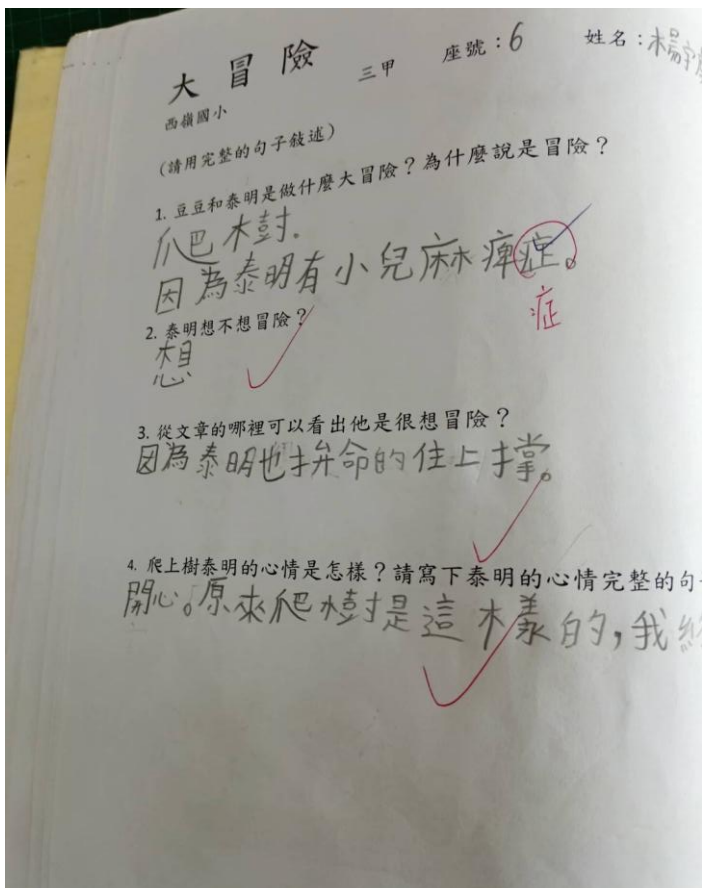 大冒險 三甲 座號：6 姓名：楊宇
西嶺國小
（請用完整的句子敍述）
1. 豆豆和泰明是做什麼大冒險？為什麼說是冒險？
爬樹.
因為泰明有小兒麻痺症。
症
2. 泰明想不想冒險？
想
3. 從文章的哪裡可以看出他是很想冒險？
因為泰明也拚命的住上撐。
4. 爬上樹泰明的心情是怎樣？請寫下泰明的心情完整的句
開心。原來爬樹是這樣的，我終